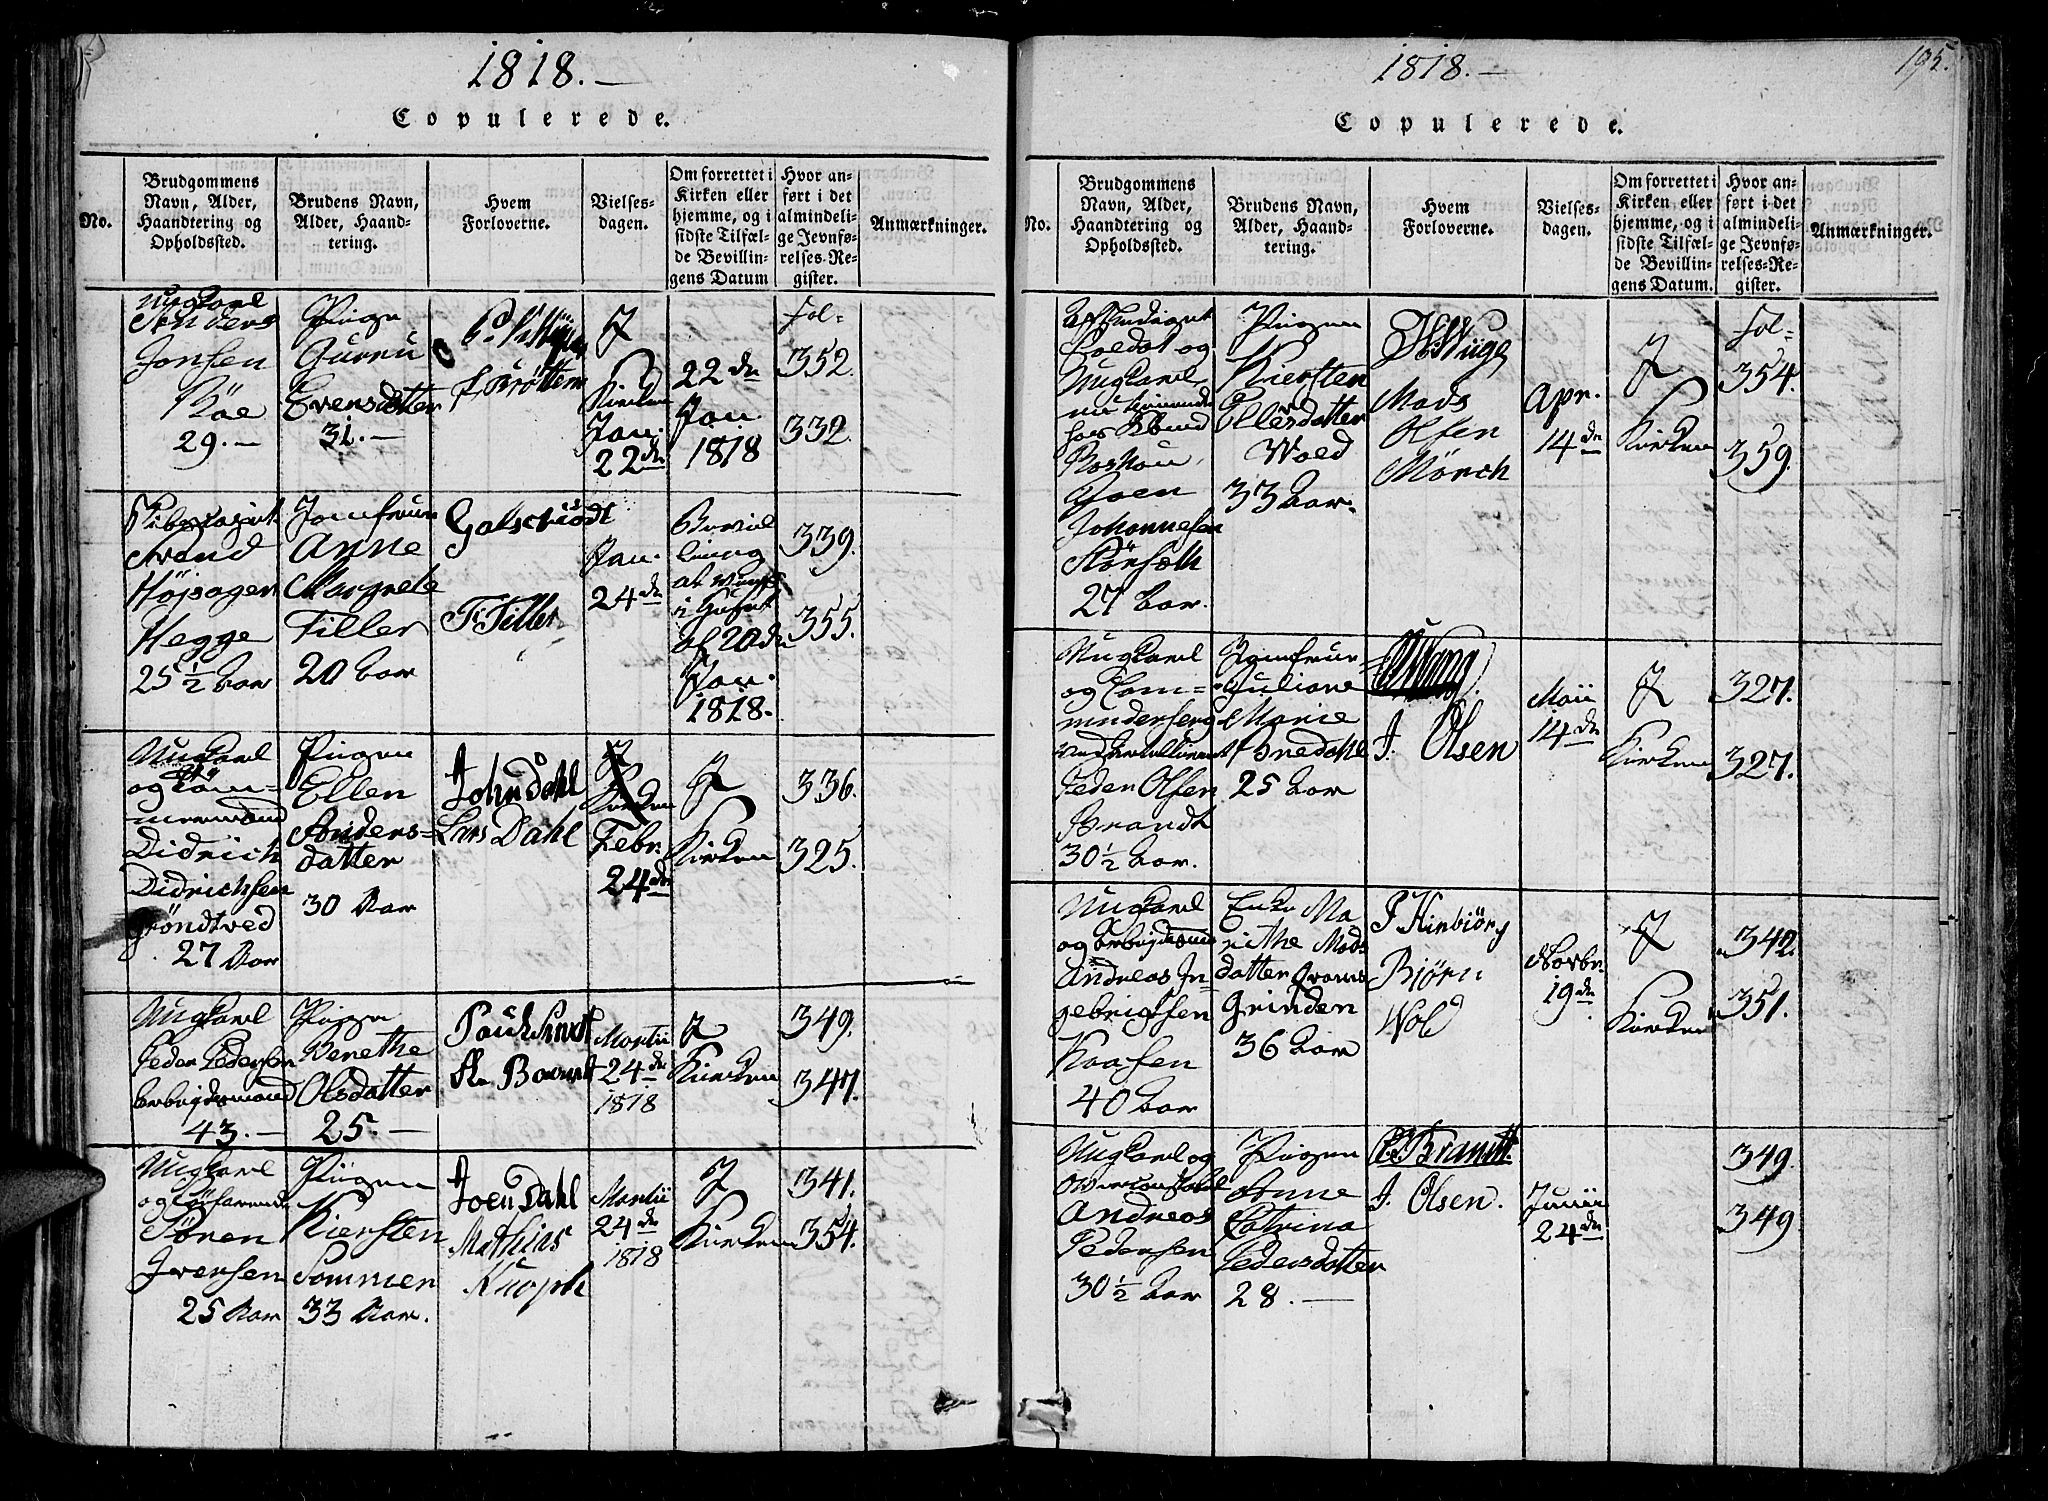 1818.—
Copulerede.
No.
Brudgommens
Navn, Alder,
Haandtering og
Opholdssted.
Brudens Navn,
Alder, Haand-
tering.
Hvem
Forloverne.
Vielses-
dagen.
Om forrettet i
Kirken eller
hjemme, og i
sidste Tilfæl-
de Bevillin-
gens Datum
Hvor an-
ført i det
almindeli-
ge Jevnfø-
relses-Re-
gister.
Anmærkninger.
Ungkarl
Anders
Jonsen
29.—
Pigen
Guruu
Evensdatter
31.—
I
Kirken
Jan.
22de
22de
Jan.
1818
Fol-
352.
332.
Svend
Højsager
Hegge
25½ Aar
Jomfrue
Anne
Margrete
Tiller
20 Aar
Galschiödt
F. Tiller
Jan.
24de
Bevil
ling
af 20de
Jan.
1818.
339.
355.
Ungkarl
og Töm-
mermand
Didrich
Didrichsen
Gröndtved
27 Aar
Pigen
Ellen
Anders=
datter
30 Aar
A
Johndahl
Lars Dahl
I
Kirken
Febr.
24de
I
Kirken
336.
325.
Ungkarl
Peder Pedersen
Arbeidsmand
43.—
Pigen
Berethe
Olsdatter
25.—
Martii
24de
1818
I
Kirken
349.
347.
Ungkarl
og
Sören
Iversen
25 Aar
Pigen
Kiersten
Sommer
33 Aar.
Joen Dahl
Mathias
Knoph
Martii
24de
1818
I
Kirken
341.
354.
1818.—
195.
Copulerede.
No.
Brudgommens
Navn, Alder,
Haandtering og
Opholdssted.
Brudens Navn,
Alder, Haand-
tering.
Hvem
Forloverne.
Vielses-
dagen.
Om forrettet i
Kirken eller
hjemme, og i
sidste Tilfæl-
de Bevillin-
gens Datum.
Hvor an-
ført i det
almindeli-
ge Jevnfø-
relses-Re-
gister.
Anmærkninger.
Soldat og
Ungkarl,
hos
Joen
Johannesen
27 Aar.
Pigen
Kiersten
Ellersdatter
Wold
33 Aar.
Mads
Olsen
Mörch
Apr.
14de
I
Kirken
Fol-
354.
359.
Ungkarl
og
ved Artilleriet
Peder Olsen
Brandt
30½ Aar.
Jomfrue
Juliane
Marie
Bredahl
25 Aar
J. Olsen
Maii
14de
I
Kirken
327.
327.
Ungkarl
og Arbeidsmand
Andreas In=
gebrigtsen
40 Aar
Enke Ma
rithe Mads
datter
Grinden
36 Aar
Björn
Wold
Novbr.
19de
I
Kirken
342.
351.
Ungkarl og
Andreas
Pedersen
30½ Aar
Pigen
Anne
Catrina
Pedersdatter
28.—
Brandt
J. Olsen.
Junii
24de
349.
349.